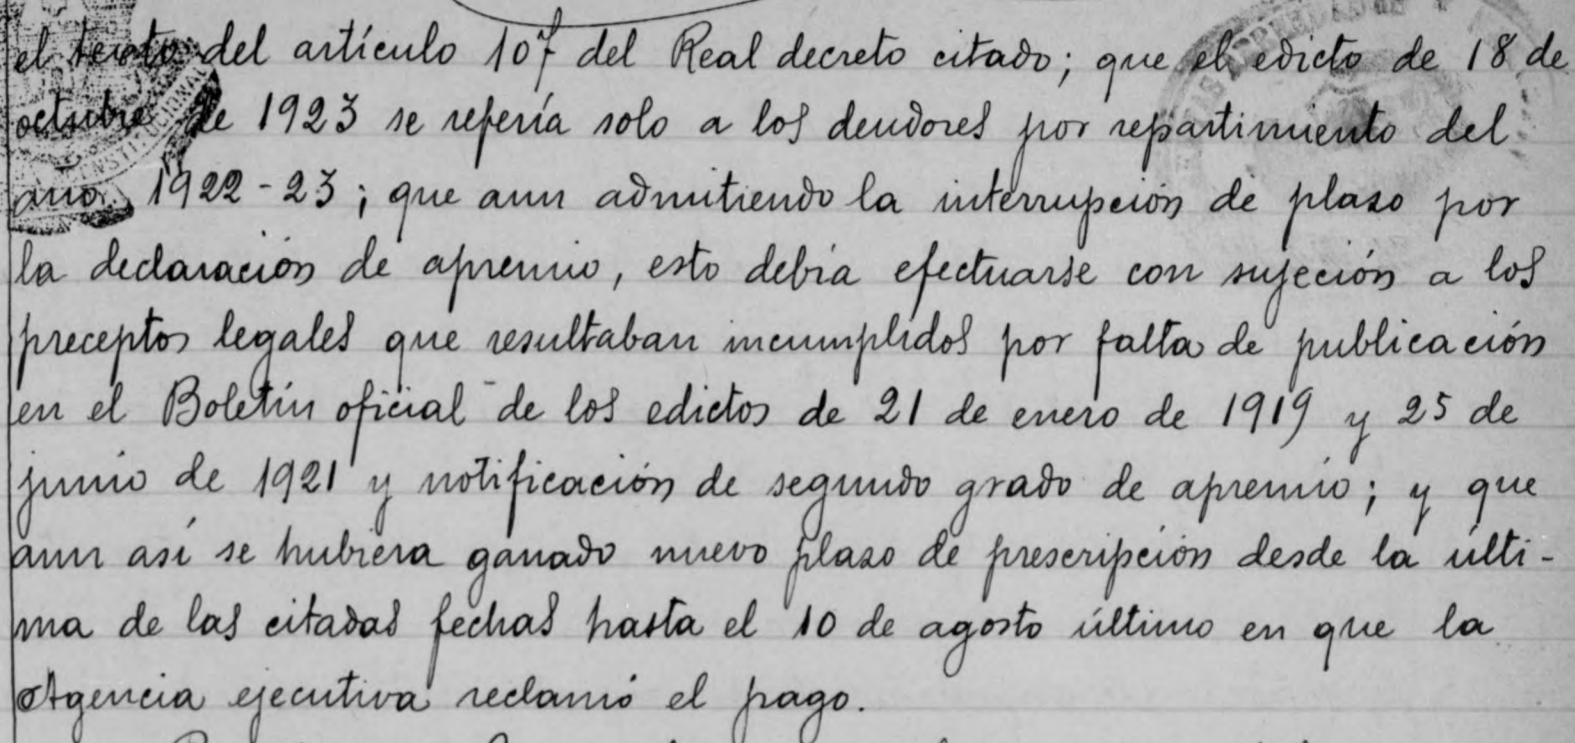 el texto del artículo 107 del Real decreto citado; que el edicto de 18 de
octubre de 1923 se refería solo a los deudores por repartimiento del
año 1922-23; que aun admitiendo la interrupción de plazo por
la declaración de apremio, esto debía efectuarse con sujeción a los
preceptos legales que resultaban incumplidos por falta de publicación
en el Boletín oficial de los edictos de 21 de enero de 1919 y 25 de
junio de 1921 y notificación de segundo grado de apremio; y que
aun así se hubiera ganado nuevo plazo de prescripción desde la últi-
ma de las citadas fechas hasta el 10 de agosto último en que la
Agencia ejecutiva reclamó el pago.